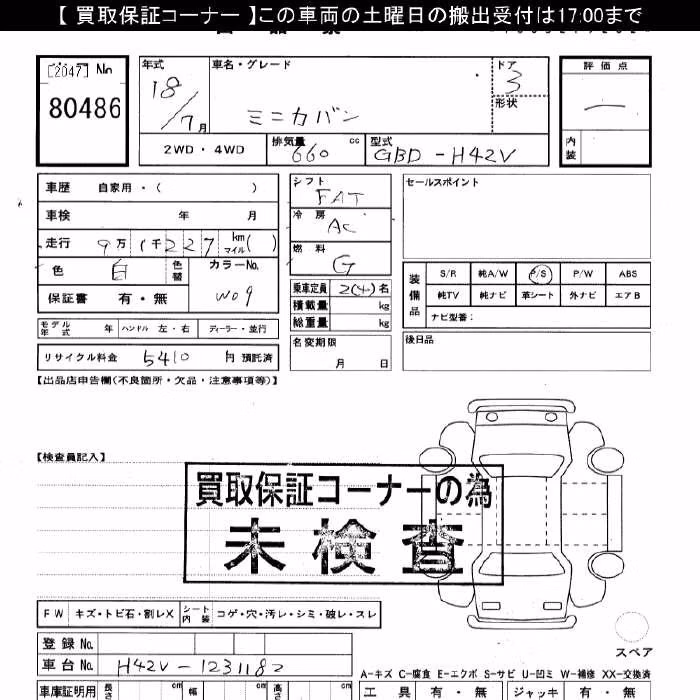 【 買取保証コーナー 】この車両の土曜日の搬出受付は17:00まで
[2047] No 80486
年式 18/7月
車名・グレード ミニカバン
ドア 3
形状
評価点 一
内装
2WD・4WD
排気量 660 cc
型式 GBD-H42V
車歴 自家用・( )
車検 年 月
走行 9万1千227 km マイル( )
色 白 色替 カラーNo. W09
保証書 有・無
シフト FAT
冷房 AC
燃料 G
乗車定員 2(4)名
積載量 kg
総重量 kg
セールスポイント
装備品 S/R 純A/W P/S P/W ABS
純TV 純ナビ 革シート 外ナビ エアB
ナビ型番:
モデル年式 年 ハンドル 左・右 ディーラー・並行
名変期限 月 日
後日品
リサイクル料金 5410 円 預託済
【出品店申告欄(不良箇所・欠品・注意事項等)】
【検査員記入】
買取保証コーナーの為
未検査
FW キズ・トビ石・割レX シート内装 コゲ・穴・汚レ・シミ・破レ・スレ
スペア
登録 No.
車台 No. H42V-1231182
A-キズ C-腐食 E-エクボ S-サビ U-凹ミ W-補修 XX-交換済
車庫証明用 長さ cm 幅 cm 高さ cm
工具 有・無 ジャッキ 有・無